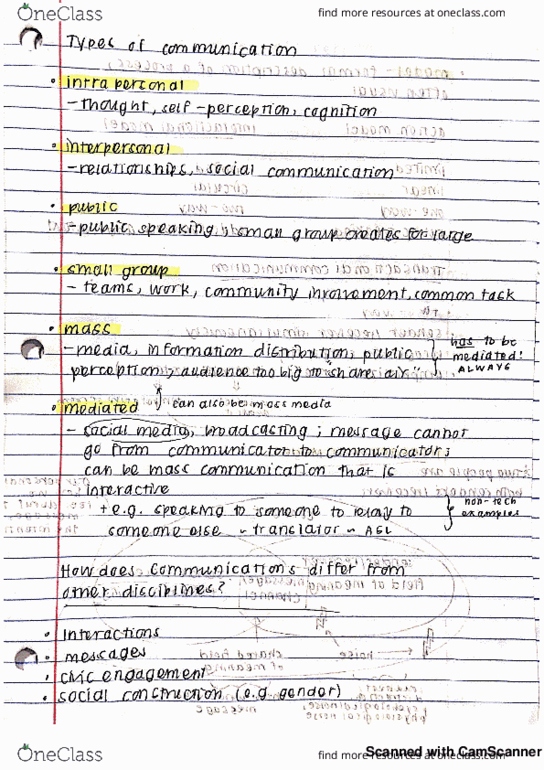 OneClass
find more resources at oneclass.com
Types of communication
• intrapersonal
- thought, self-perception, cognition
• interpersonal
- relationships, social communication
• public
- public speaking, small group creates for large
• small group
- teams, work, community involvement, common task
• mass
- media, information distribution, public
perception, audience too big to "share air"
has to be
mediated!
ALWAYS
• mediated
can also be mass media
- social media, broadcasting; message cannot
go from communicator to communicator;
can be mass communication that is
interactive
+ e.g. speaking to someone to relay to
someone else - translator - ASL
non-tech
examples
How does communications differ from
other disciplines?
• interactions
• messages
• civic engagement
• social construction (e.g. gender)
OneClass
find more resources at oneclass.com
Scanned with CamScanner